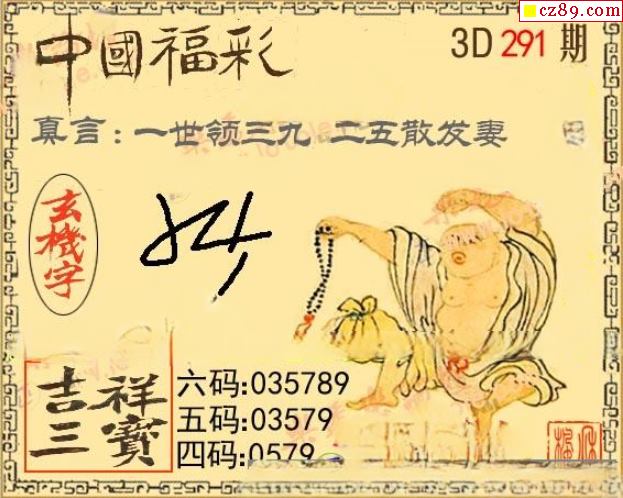 cz89.com
中國福彩
3D 291 期
真言：一世领三九 二五散发妻
玄機字
吉祥
三寶
六码:035789
五码:03579
四码:0579